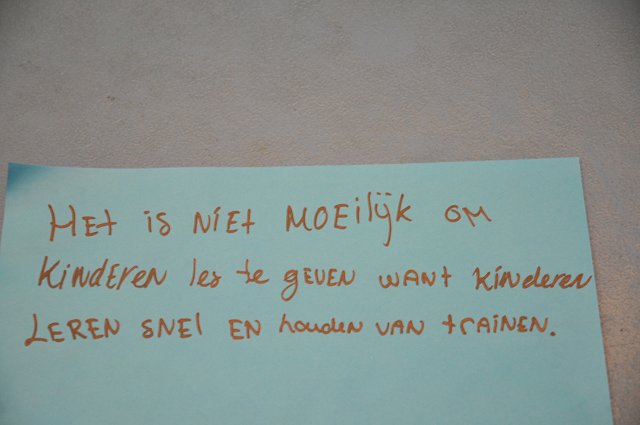 Het is niet moeilijk om
kinderen les te geven want kinderen
leren snel en houden van trainen.